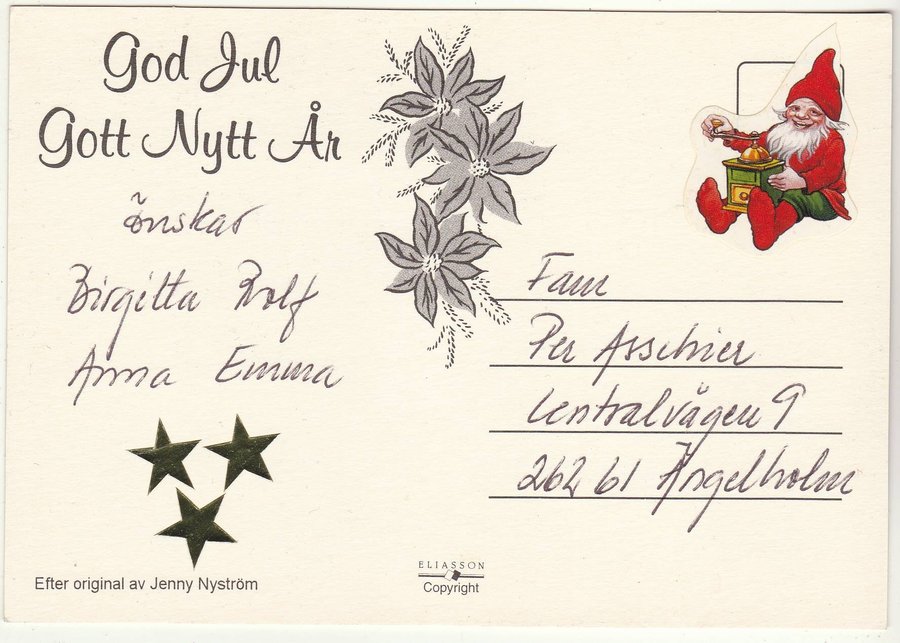 God Jul
Gott Nytt År
önskar
Birgitta Rolf
Anna Emma
Efter original av Jenny Nyström
ELIASSON
Copyright
Fam
Per Asschier
Centralvägen 9
262 61 Ängelholm